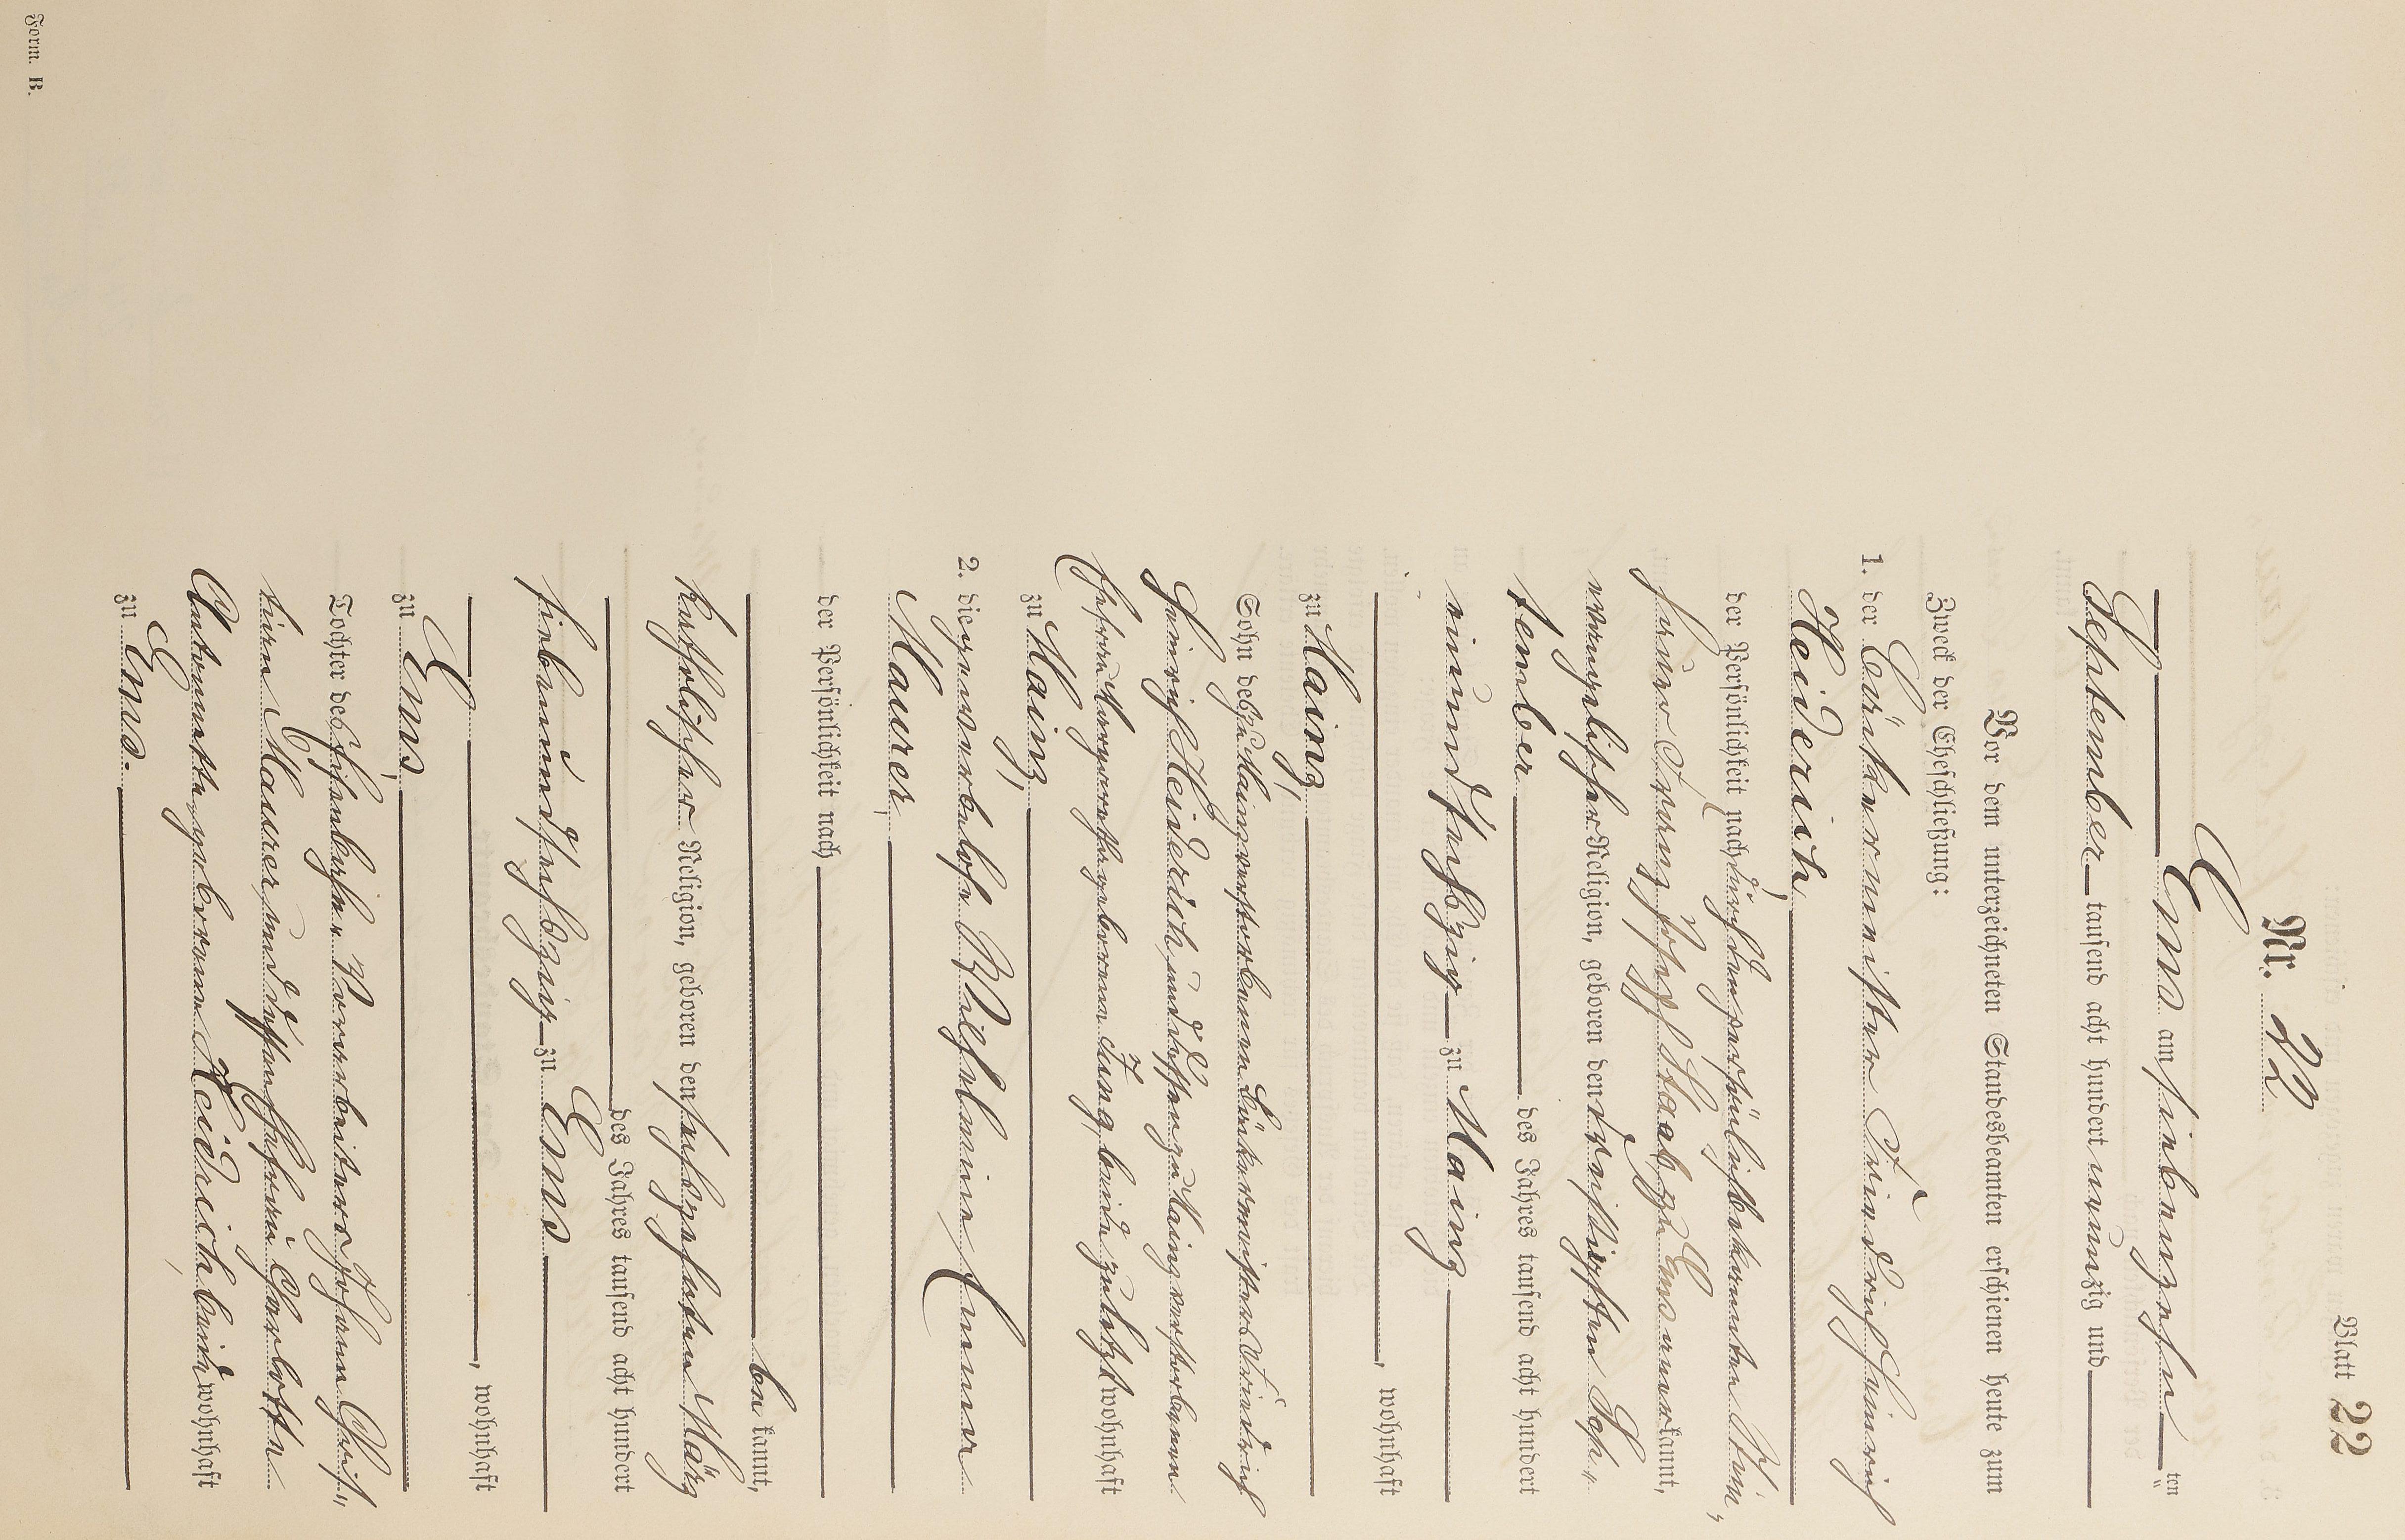 Blatt 22
Nr. 22
Ems am siebenzehn ten
September tausend acht hundert neunzig und
Vor dem unterzeichneten Standesbeamten erschienen heute zum
Zweck der Eheschließung:
1. der Bäckermeister Friedrich Heinrich
Heiderich,
der Persönlichkeit nach durch den persönlich bekannten Stein„
hauer Franz Joseph Staab zu Ems anerkannt,
evangelischer Religion, geboren den dreißigsten Sep„
tember des Jahres tausend acht hundert
einundsechszig zu Mainz
, wohnhaft
zu Mainz,
Sohn des zu Mainz verstorbenen Bäckermeisters Friedrich
Heinrich Heiderich und dessen zu Mainz verstorbenen
Ehefrau Margaretha geborenen Jung, beide zuletzt wohnhaft
zu Mainz,
2. die gewerbelose Wilhelmine Anna
Maurer,
der Persönlichkeit nach
be kannt,
katholischer Religion, geboren den sechszehnten März
des Jahres tausend acht hundert
siebenundsechszig zu Ems
, wohnhaft
zu Ems,
Tochter des Hilfenbacher Vorarbeiters Johann Chris„
tian Maurer und dessen Ehefrau Charlotte
Antonette geborene Heidrich, beide wohnhaft
zu Ems.
Form. B.